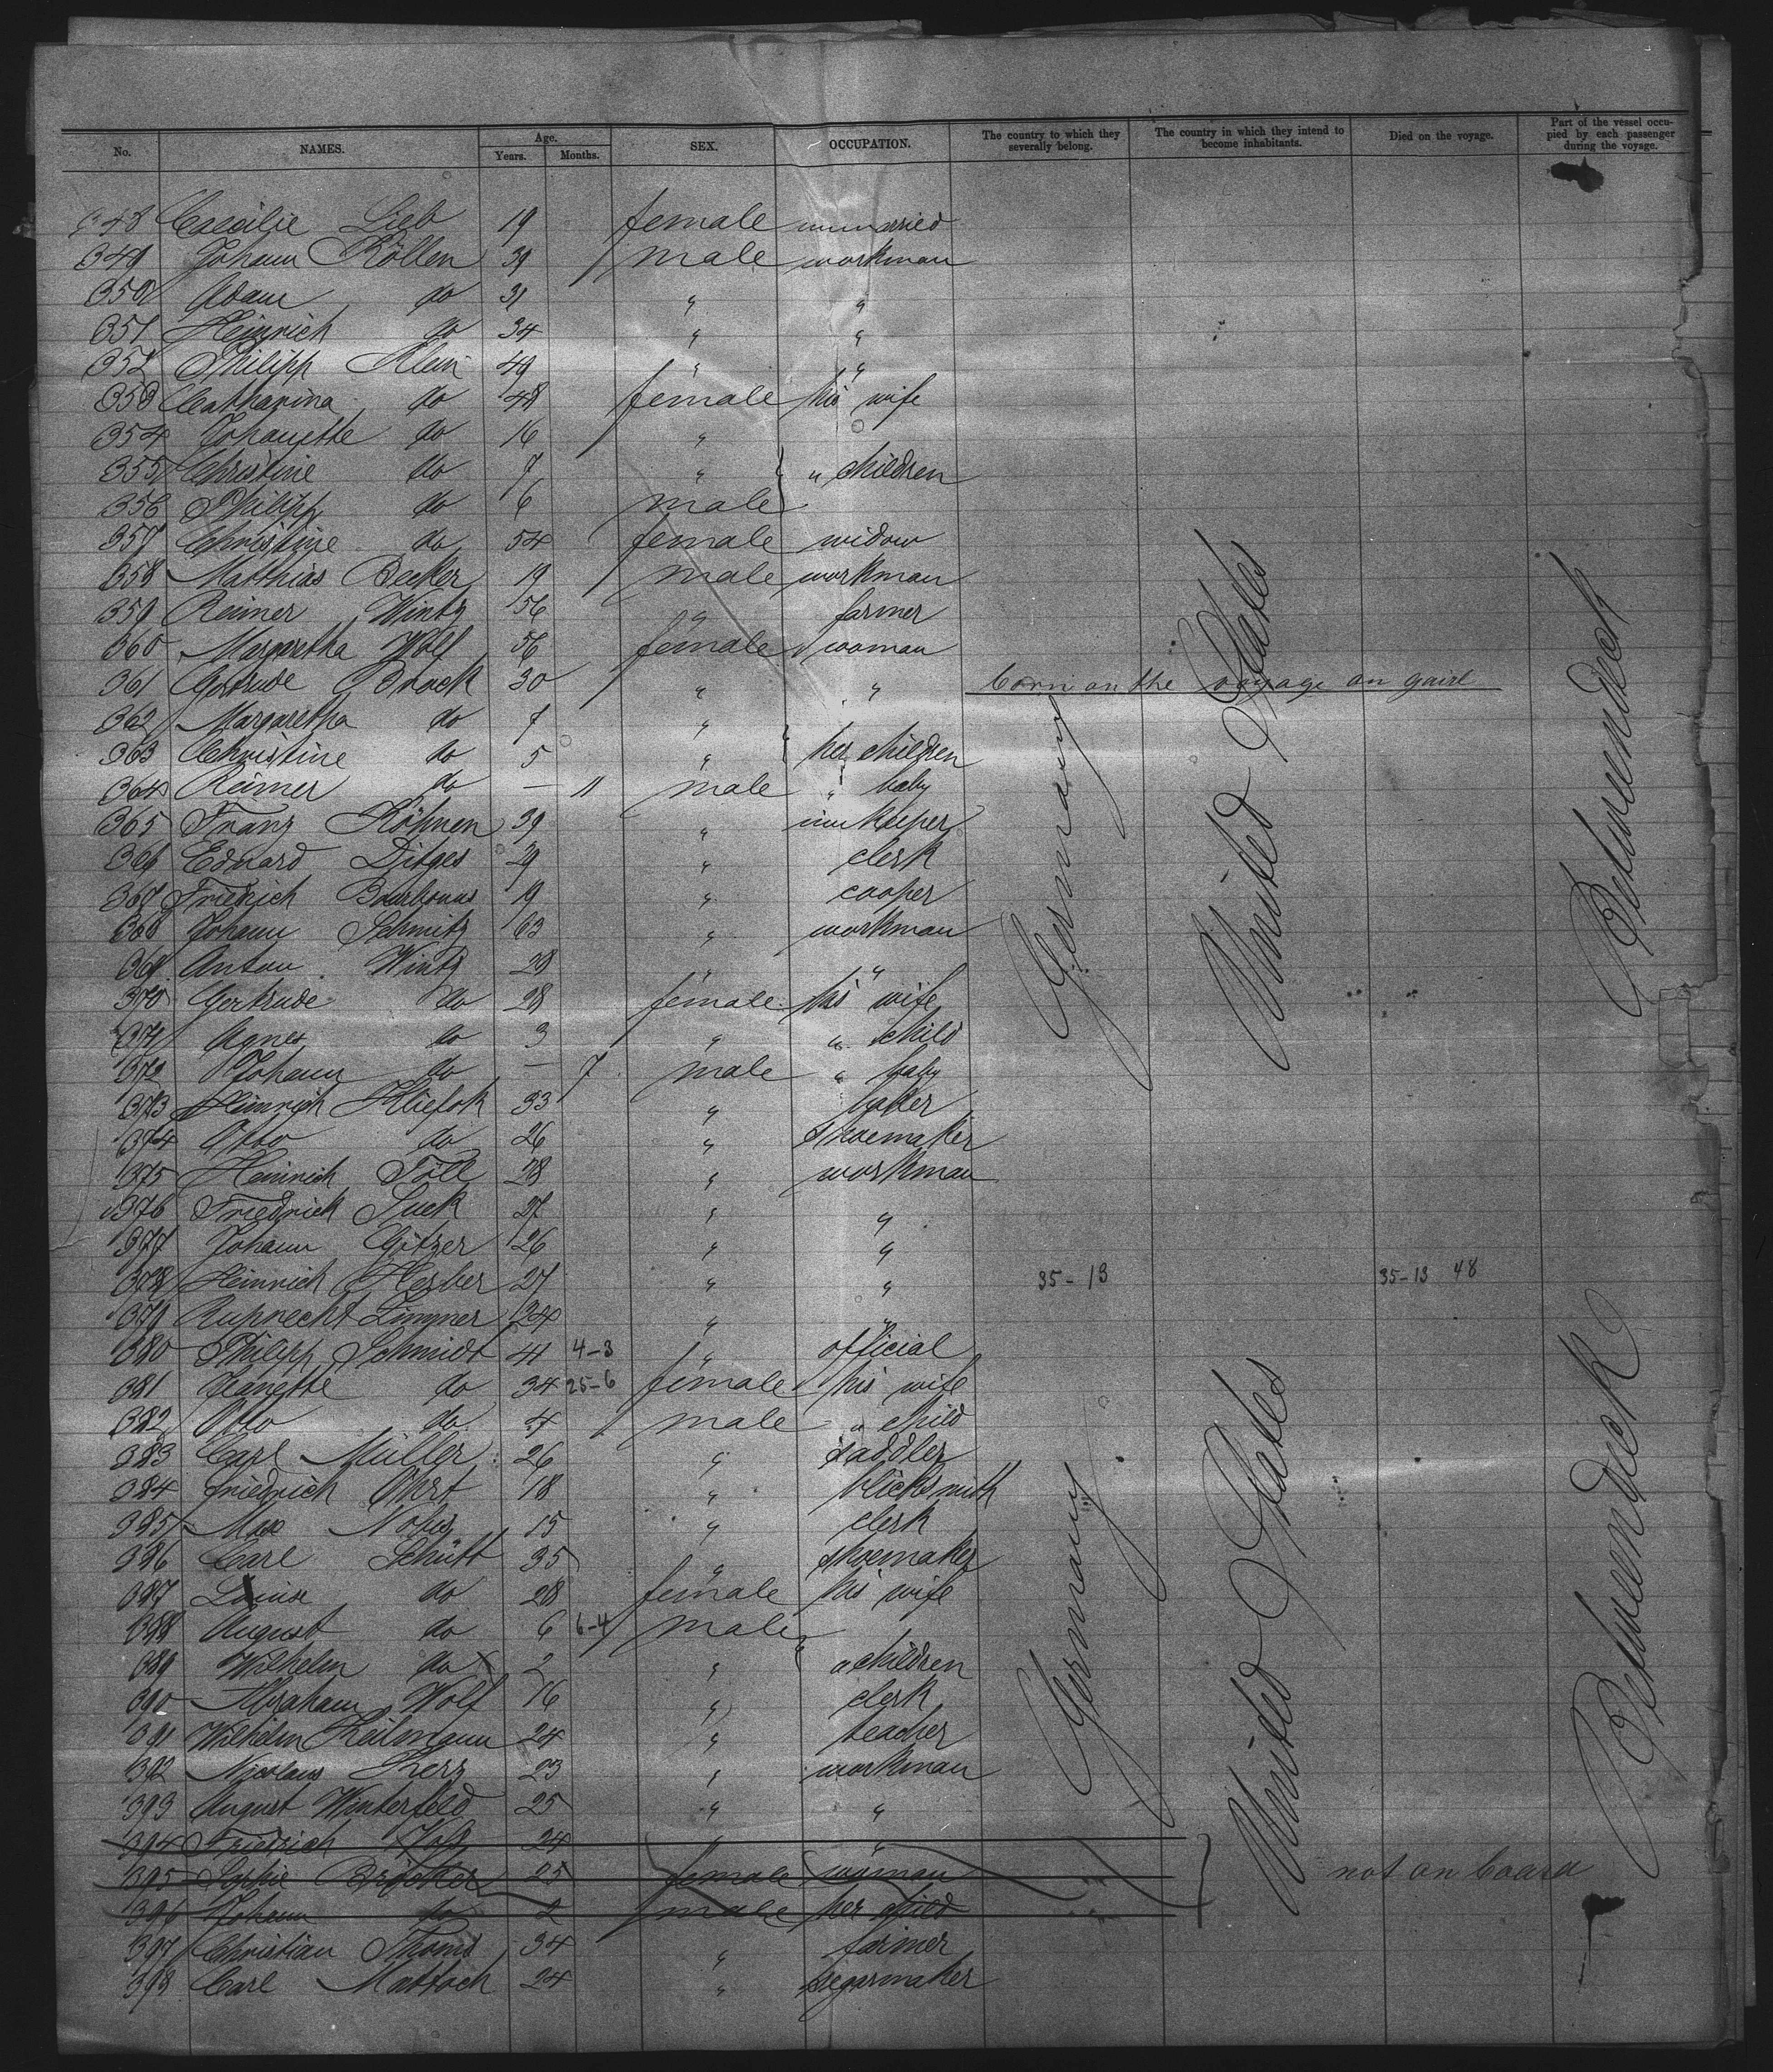 No. NAMES. Age. Years. Months. SEX. OCCUPATION. The country to which they severally belong. The country in which they intend to become inhabitants. Died on the voyage. Part of the vessel occupied by each passenger during the voyage.
348 Caecilie Lieb 19 female unmarried
349 Johann Röllen 39 male workman
350 Adam do 31 " "
351 Heinrich do 34 " "
352 Philipp Klein 49 " "
353 Catharina do 48 female his wife
354 Johanette do 16 "
355 Christine do 7 " " children
356 Philipp do 6 male
357 Christine do 54 female widow
358 Matthias Becker 19 male workman
359 Reimer Wintz 56 " farmer
360 Margaretha Wolf 56 female woman
361 Gertrude Brack 30 " " born on the voyage an gairl
362 Margaretha do 7 "
363 Christine do 5 " her children
364 Reimer do — 11 male " baby
365 Franz Röhnen 39 " innkeeper
366 Eduard Ditges 29 " clerk
367 Friedrich 19 " cooper
368 Johann Schmitz 63 " workman
369 Anton Wintz 28 " "
370 Gertrude do 28 female his wife
371 Agnes do 3 " " child
372 Johann do — 7 male " baby
373 Heinrich Kliefoth 33 " baker
374 Otto do 26 " shoemaker
375 Heinrich Töll 28 " workman
376 Friedrich Suck 27 " "
377 Johann Götzer 26 " "
378 Heinrich Herber 27 " " 35-13 35-13 48
379 Ruprecht Lingner 24 " "
380 Philipp Schmidt 41 4-3 " official
381 Jeanette do 34 25-6 female his wife
382 Otto do 4 male " child
383 Carl Müller 26 " saddler
384 Friedrich Ohrt 18 " blicksmith
385 Max Nobis 15 " clerk
386 Carl Schütt 35 " shoemaker
387 Louise do 28 female his wife
388 August do 6 6-4 male
389 Wilhelm do x 2 " " children
390 Abraham Wolf 16 " clerk
391 Wilhelm Heilmann 24 " teacher
392 Nicolaus Kerz 23 " workman
393 August Winterfeld 25 " "
394 Friedrich 24 " "
395 Sophie Bröcker 25 female woman not on board
396 Johann do 2 male her child
397 Christian Thoms 34 " farmer
398 Carl Mattoch 24 " segarmaker
Germany
United States
Betweendeck
Germany
United States
Betweendeck